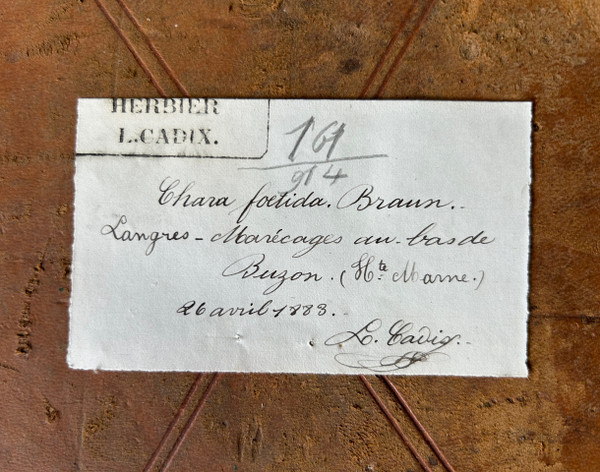 HERBIER
L. CADIX.
161
914
Chara foetida. Braun.
Langres - Marécages au bas de
Buzon. (Hte Marne.)
26 avril 1883.
L. Cadix.